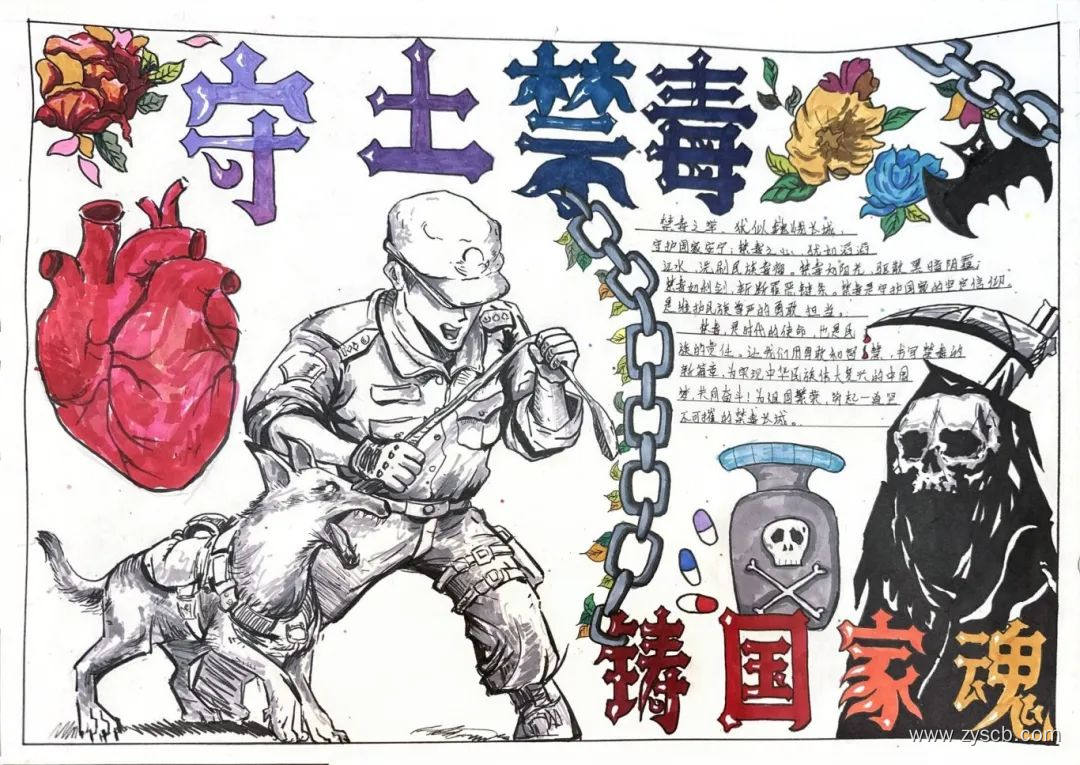 守土禁毒
禁毒之军，犹似巍峨长城，
守护国家安宁；禁毒之心，犹如滔滔
江水，洗刷民族耻辱。禁毒如阳光，驱散黑暗阴霾；
禁毒如利剑，斩断罪恶链条。禁毒是守护国家的坚定信仰，
是维护民族尊严的勇敢担当。
禁毒，是时代的使命，也是民
族的责任。让我们用勇敢如 禁，书写禁毒的
新篇章，为实现中华民族伟大复兴的中国
梦，共同奋斗！为祖国繁荣，筑起一道坚
不可摧的禁毒长城。
铸国家魂
www.zyscb.com